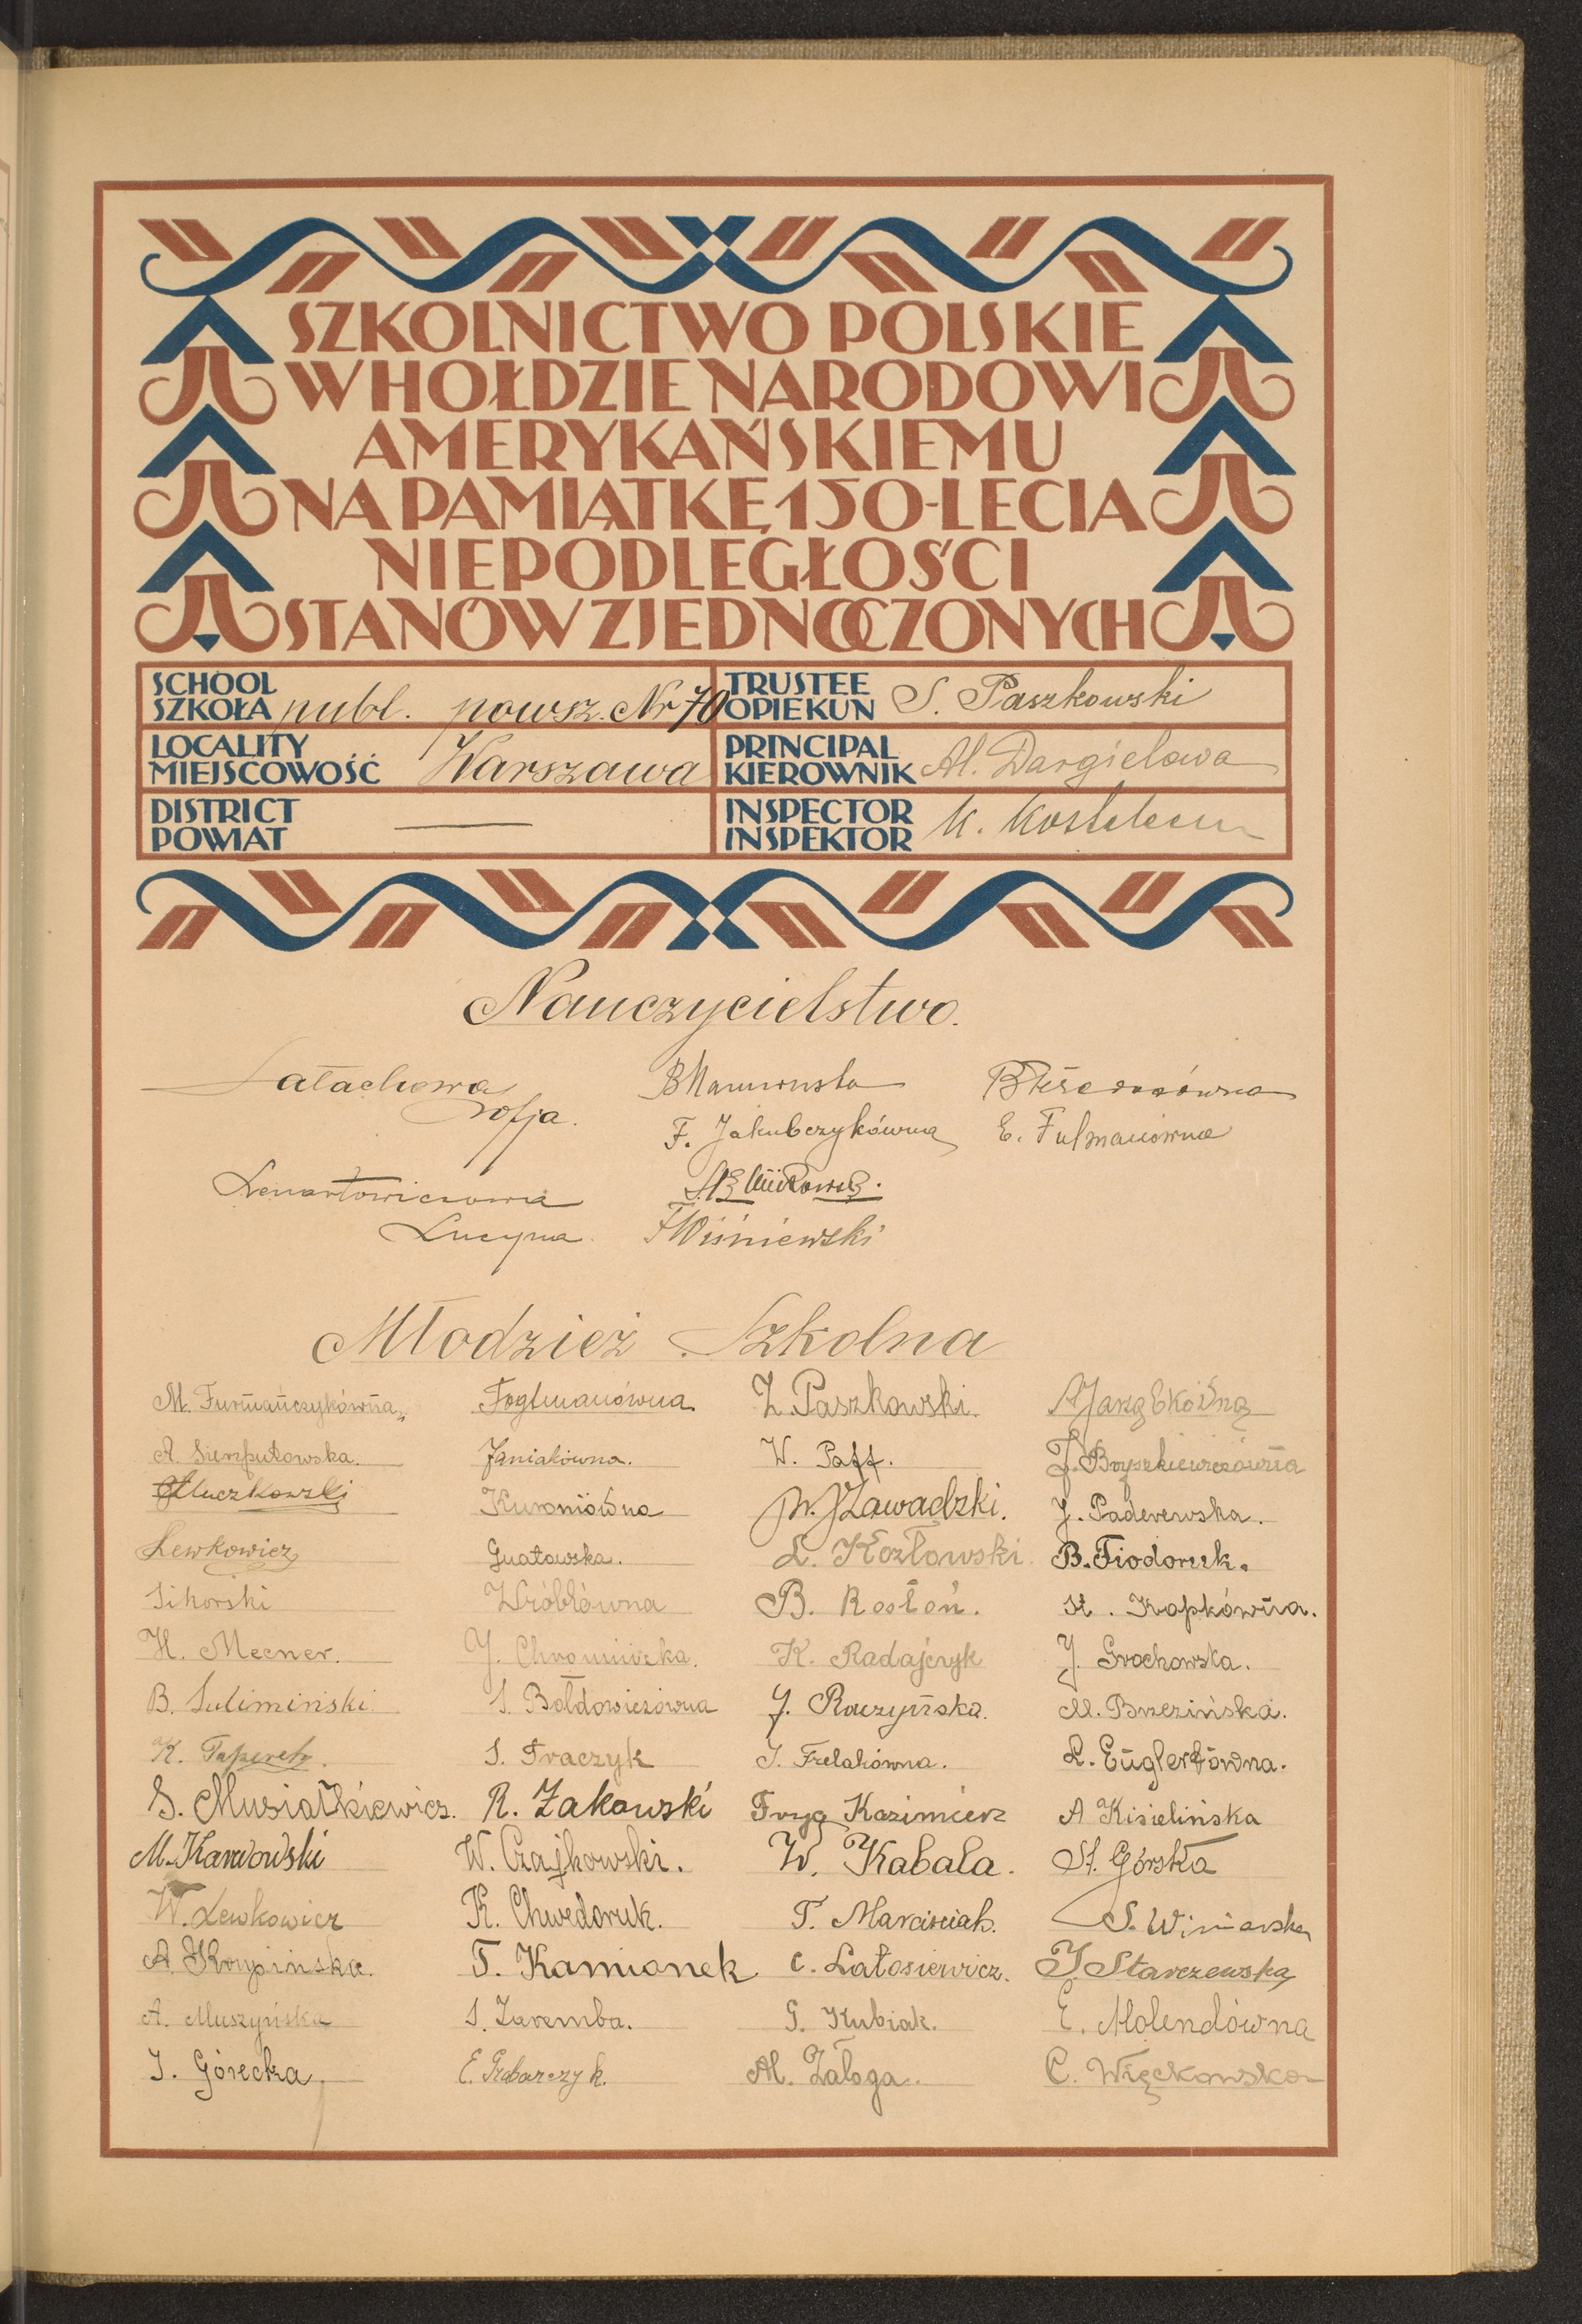 SZKOLNICTWO POLSKIE
W HOŁDZIE NARODOWI
AMERYKAŃSKIEMU
NA PAMIĄTKĘ 150-LECIA
NIEPODLEGŁOŚCI
STANÓW ZJEDNOCZONYCH
SCHOOL
SZKOŁA publ. powsz. Nr 70
TRUSTEE
OPIEKUN S. Paszkowski
LOCALITY
MIEJSCOWOŚĆ Warszawa
PRINCIPAL
KIEROWNIK Al. Dargielowa
DISTRICT
POWIAT —
INSPECTOR
INSPEKTOR K.
Nauczycielstwo.
Łatachowa
Zofja.
F. Jakubczykówna E. Fulmanówna
Lenartowiczowa
Lucyna. F Wiśniewski
Młodzież Szkolna
M. Furmańczykówna Fogtmanówna Z. Paszkowski.
A. Sierputowska. Janiakówna. W. Paff.
Kuroniówna W. J. Zawadzki. J. Paderewska.
Lewkowicz Gnatowska. L. Kozłowski. B. Fiodoruk.
Sikorski Wróblówna B. Rosłoń. H. Kopkówna.
H. Mecner. J. K. Radajczyk J. Grochowska.
B. Sulimiński S. Bołdowiczówna J. Raczyńska. M. Brzezińska.
K. S. Traczyk J. Frelakówna. L. Euglertówna.
S. Musiałkiewicz. R. Żakowski Fryg Kazimierz A Kisielińska
M. Karwowski W. Czajkowski. W. Kabala. St. Górska
W. Lewkowicz K. Chwedoruk. T. Marciniak. S. Winiarska
A. Krupińska. T. Kamionek C. Łatosiewicz. J. Starczewska
A. Muszyńska S. Zaremba. G. Kubiak. E. Molendówna
J. Górecka. E. Grabarczyk. Al. Załoga. C. Więckowska